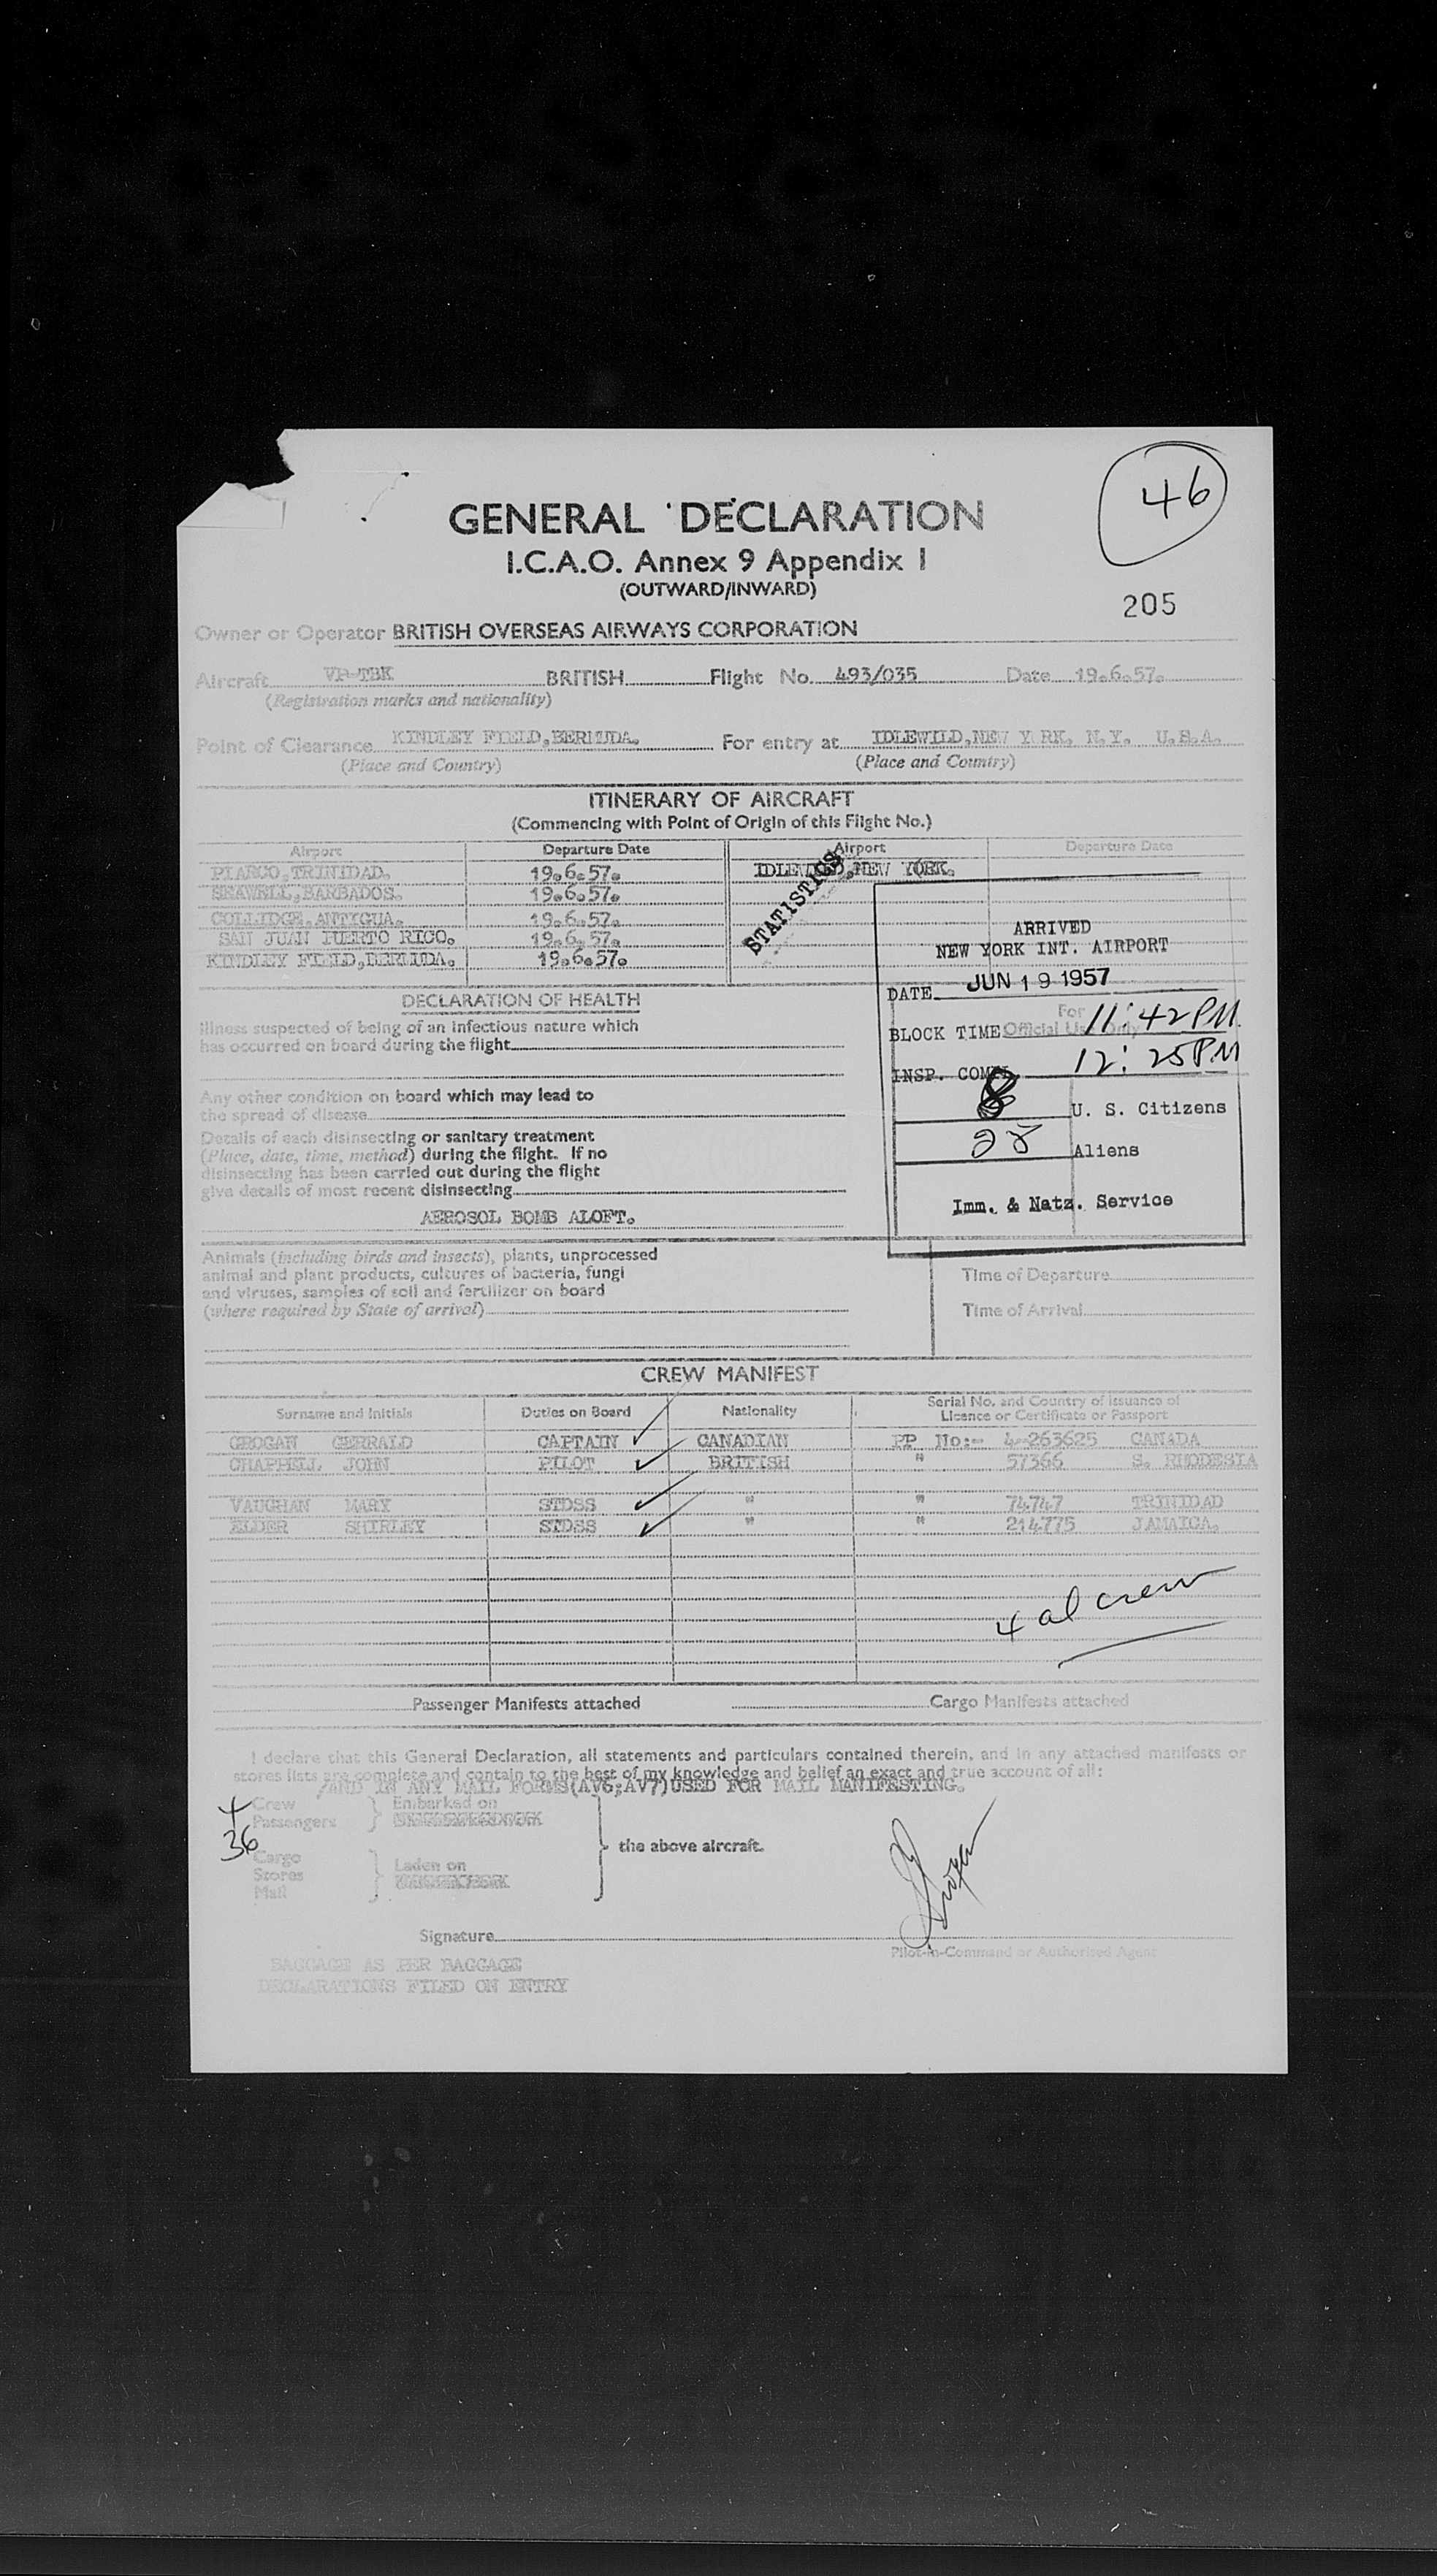 46
GENERAL DECLARATION
I.C.A.O. Annex 9 Appendix I
(OUTWARD/INWARD)
205
Owner or Operator BRITISH OVERSEAS AIRWAYS CORPORATION
Aircraft VP-TBK BRITISH Flight No. 493/035 Date 19.6.57.
(Registration marks and nationality)
Point of Clearance KINDLEY FIELD,BERMUDA. For entry at IDLEWILD,NEW Y RK, N.Y. U.S.A.
(Place and Country) (Place and Country)
ITINERARY OF AIRCRAFT
(Commencing with Point of Origin of this Flight No.)
Airport Departure Date Airport Departure Date
PIARCO,TRINIDAD. 19.6.57. IDLEWILD,NEW YORK.
SEAWELL,BARBADOS. 19.6.57.
COLLIDGE,ANTIGUA. 19.6.57.
SAN JUAN PUERTO RICO. 19.6.57.
KINDLEY FIELD,BERMUDA. 19.6.57.
STATISTICS
ARRIVED
NEW YORK INT. AIRPORT
DATE JUN 19 1957
For
BLOCK TIME Official Use Only 11:42PM
INSP. COMPL. 12:25PM
8 U. S. Citizens
28 Aliens
Imm. & Natz. Service
DECLARATION OF HEALTH
Illness suspected of being of an infectious nature which
has occurred on board during the flight
Any other condition on board which may lead to
the spread of disease
Details of each disinsecting or sanitary treatment
(Place, date, time, method) during the flight. If no
disinsecting has been carried out during the flight
give details of most recent disinsecting
AEROSOL BOMB ALOFT.
Animals (including birds and insects), plants, unprocessed
animal and plant products, cultures of bacteria, fungi
and viruses, samples of soil and fertilizer on board
(where required by State of arrival)
Time of Departure
Time of Arrival
CREW MANIFEST
Surname and Initials Duties on Board Nationality Serial No. and Country of issuance of
Licence or Certificate or Passport
GROGAN GERRALD CAPTAIN CANADIAN PP No:- 4-263625 CANADA
CHAPPELL JOHN PILOT BRITISH " 57366 S. RHODESIA
VAUGHAN MARY STDSS " " 74747 TRINIDAD
ELDER SHIRLEY STDSS " " 214775 JAMAICA.
4 al crew
Passenger Manifests attached Cargo Manifests attached
I declare that this General Declaration, all statements and particulars contained therein, and in any attached manifests or
stores lists are complete and contain to the best of my knowledge and belief an exact and true account of all:
/AND IN ANY MAIL FORMS(AV6;AV7)USED FOR MAIL MANIFESTING.
4 Crew Embarked on
36 Passengers
the above aircraft.
Cargo
Stores Laden on
Mail
Signature Grogan
Pilot-in-Command or Authorised Agent
BAGGAGE AS PER BAGGAGE
DECLARATIONS FILED ON ENTRY